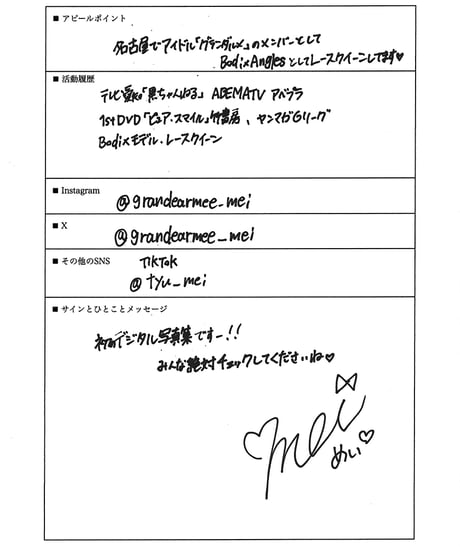 ■ アピールポイント
名古屋でアイドル「グランダルメ」のメンバーとして
Bodix Anglesとしてレースクイーンしてます♡
■ 活動履歴
テレビ愛知「黒ちゃんねる」 ABEMATV アベプラ
1stDVD「ピュア・スマイル」竹書房、ヤンマガGリーグ
Bodixモデル・レースクイーン
■ Instagram
@grandearmee_mei
■ X
@grandearmee_mei
■ その他のSNS
TikTok
@tyu_mei
■ サインとひとことメッセージ
初のデジタル写真集ですー!!
みんな絶対チェックしてくださいね♡
mei
めい♡